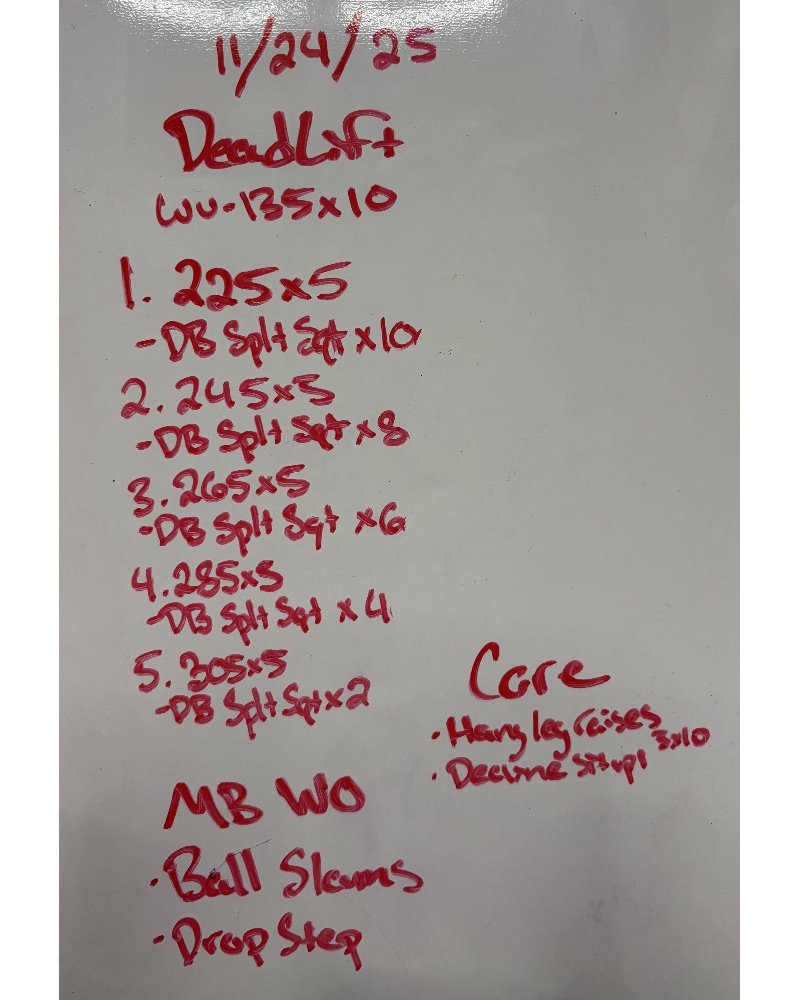 11/24/25
DeadLift
WU-135x10
1. 225x5
-DB Splt Sqt x10
2. 245x5
-DB Splt Sqt x8
3. 265x5
-DB Splt Sqt x6
4. 285x5
-DB Splt Sqt x4
5. 305x5
-DB Splt Sqt x2
MB WO
· Ball Slams
· Drop Step
Core
· Hang leg raises
3x10
· Decline situps